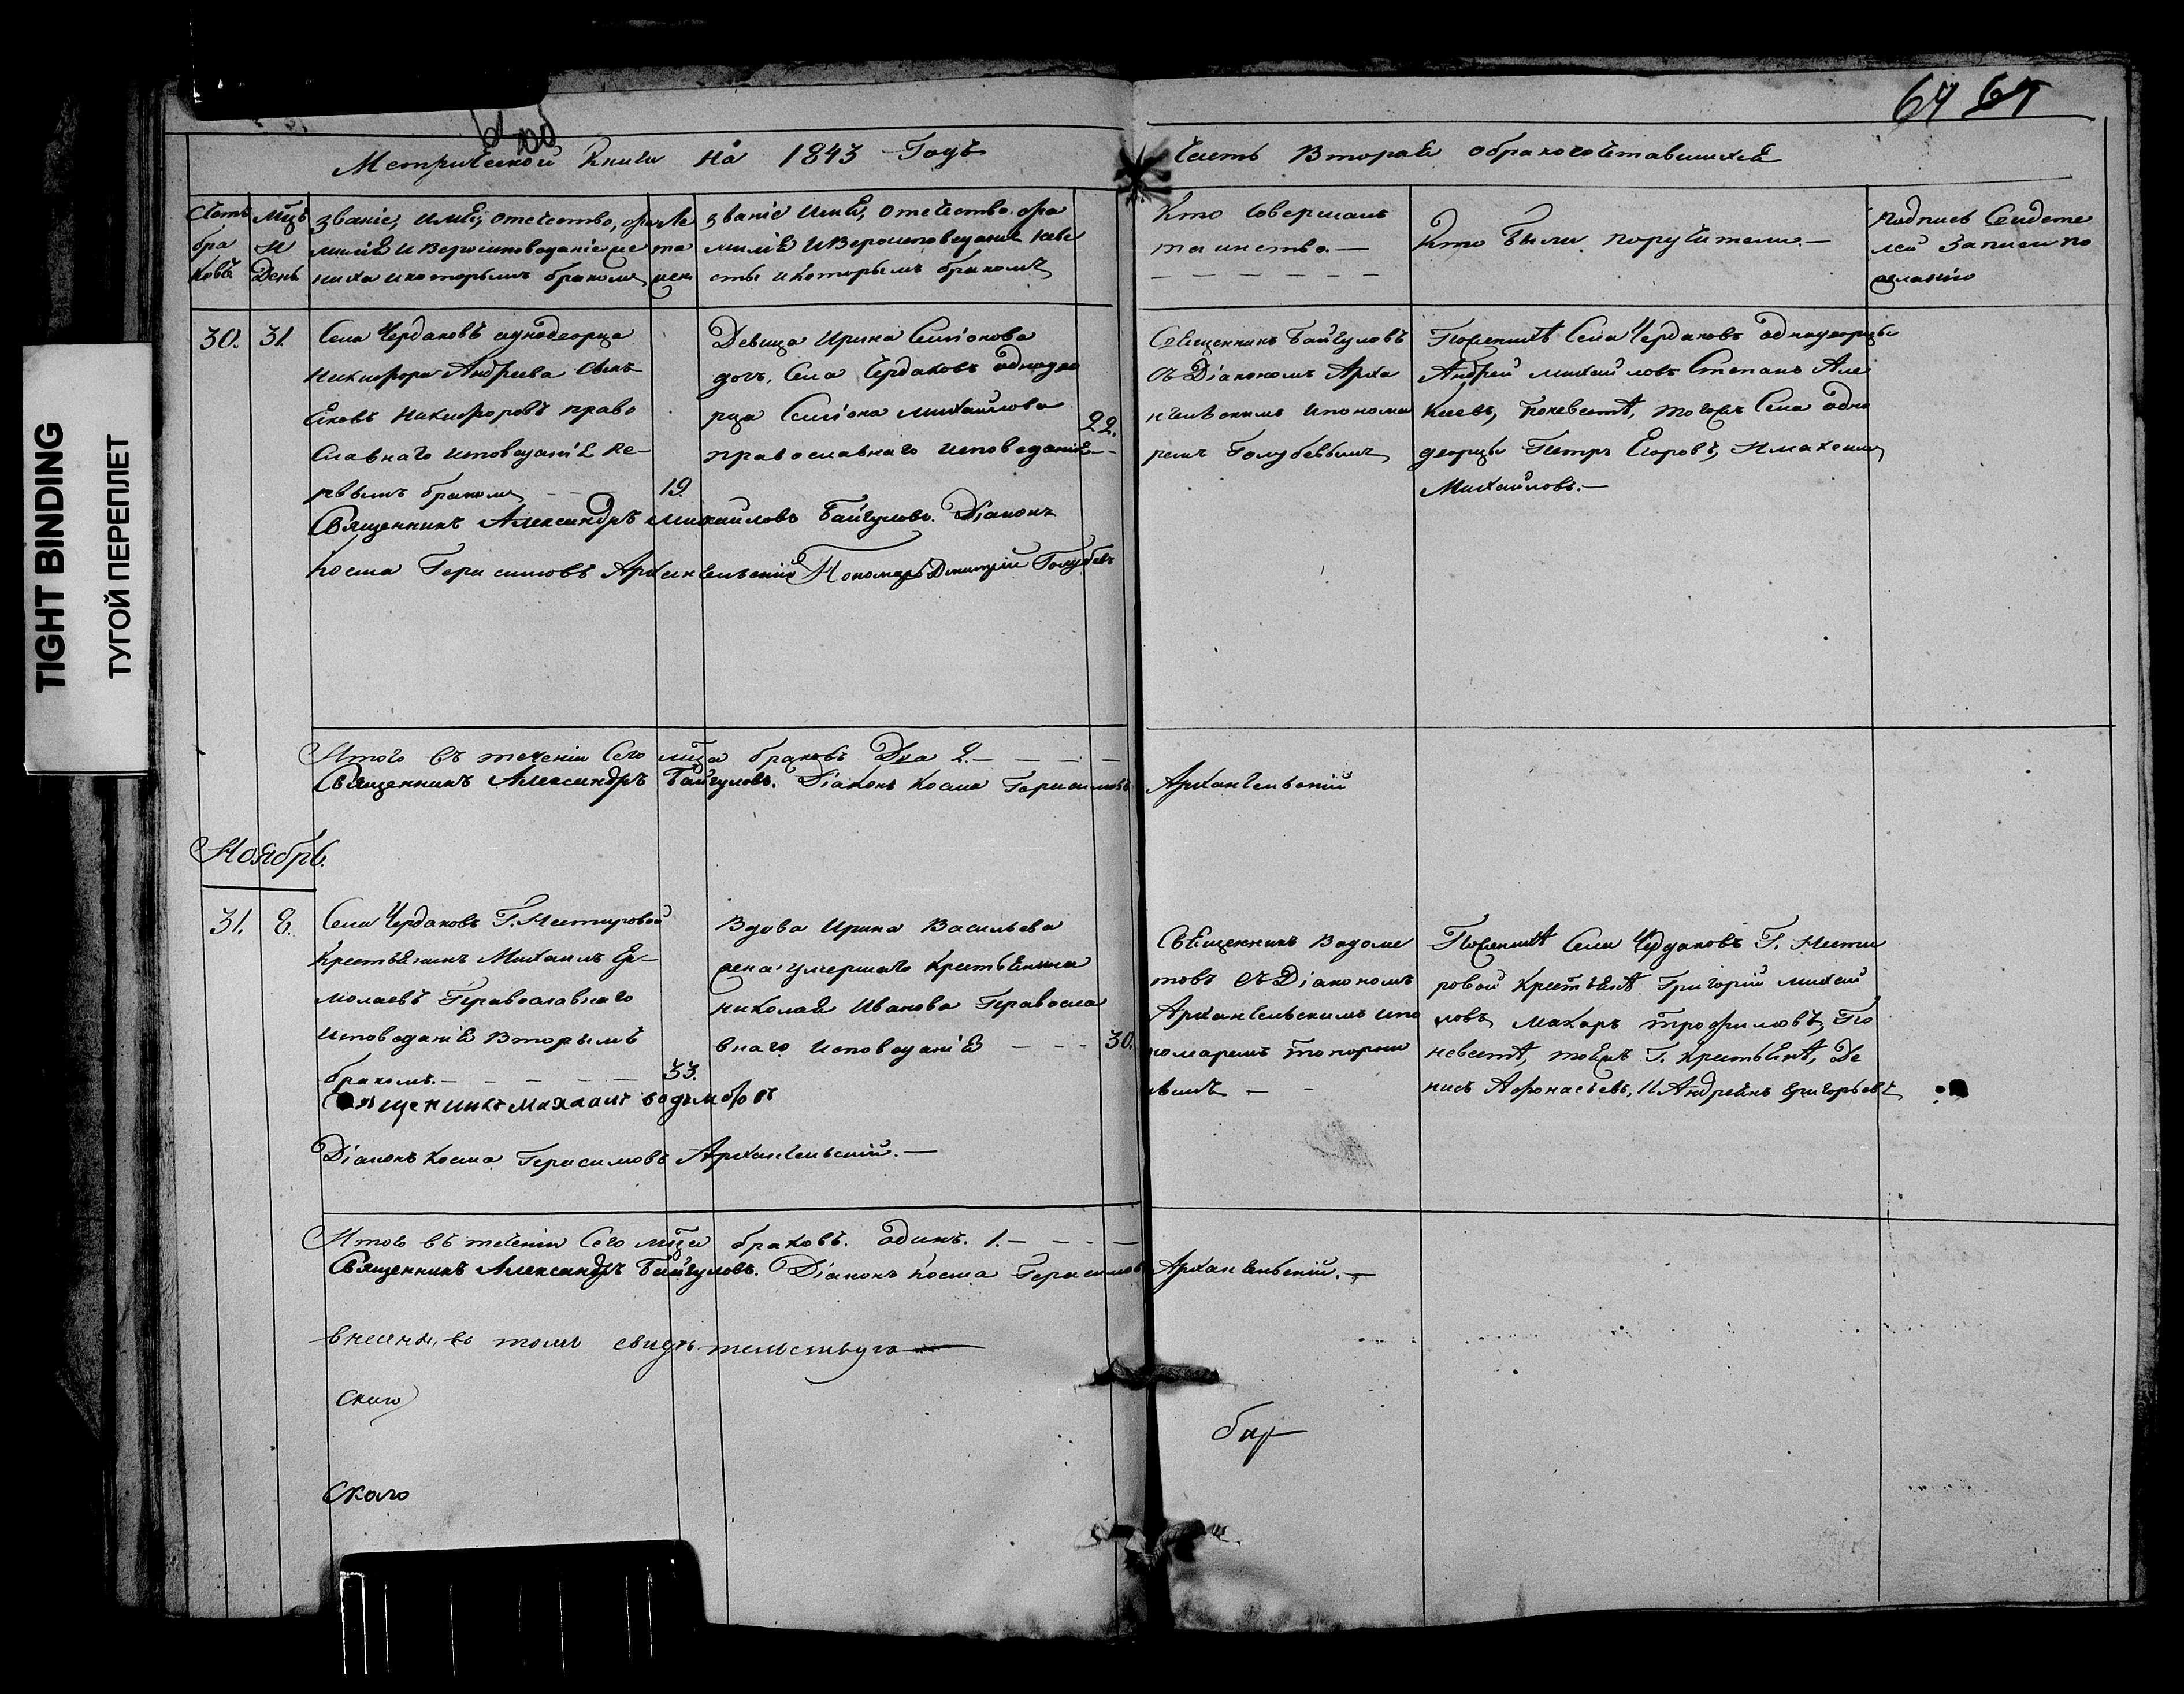 64 65
Метрической Книги на 1843 Годъ
Часть Вторая обракосочетавшихся
Счетъ бра ковъ
Мцъ и День
званіе, имя, отечество, фа
милія и Вероисповеданіе же
ниха и которымъ бракомъ
Ле
та
званіе имя, отечество фа
милія и Вероисповедание неве
сты и которымъ бракомъ
Кто Совершалъ
таинство. —
Кто были поручители. —
Подпись Свидете
лей Записи по
желанію
30. 31.
Села Чердаковъ однодворца
Никифора Андреева Сынъ
Яковъ Никифоровъ право
славнаго исповеданія пе-
рвымъ бракомъ 19.
Девица Ирина Симіонова
дочь, Села Чердаковъ однодво
рца Симіона Михайлова
православнаго исповеданія
22.
Священникъ Байгуловъ
съ Діакономъ Арха
нгельскимъ и понома
ремъ Голубевымъ
По женихѣ Села Чердаковъ однодворцы
Андрей Михайловъ Степанъ Але
ксеевъ, по невестѣ, тогожъ Села одно
дворцы Петръ Егоровъ,
Михайловъ. —
Священникъ Александръ Михаиловъ Байгуловъ. Діаконъ
Косма Герасимовъ Архангельский Пономарь Дмитрій Голубевъ
Итого въ течении Сего мца браковъ Два 2. —
Священникъ Александръ Байгуловъ. Діаконъ Косма Герасимовъ Архангельскій
Ноябрь.
31. 8.
Села Чердаковъ Г.
Крестьянинъ Михаилъ Ер-
молаевъ Православнаго
исповеданія Вторымъ
бракомъ. — 33.
Вдова Ирина Васильева
жена умершаго Крестьянина
Николая Иванова Правосла
внаго исповеданія
30.
Священникъ Водоме
товъ съ Діакономъ
Архангельскимъ и по
номаремъ Топорни
нымъ —
По женихѣ Села Чердаковъ Г.
Крестьянѣ Григорій Михай
ловъ, Макаръ Трофимовъ, По
невестѣ, Г. Крестьянѣ, Де
нисъ Афонасьевъ, и Андрейнъ Григорьевъ
Священникъ Михаилъ
Діаконъ Косма Герасимовъ Архангельскій. —
Итого въ течении Сего мца браковъ. одинъ. 1. —
Священникъ Александръ Байгуловъ. Діаконъ Косма Герасимовъ Архангельскій. —
внесены, въ томъ свидѣтельствую
ского
TIGHT BINDING
ТУГОЙ ПЕРЕПЛЕТ